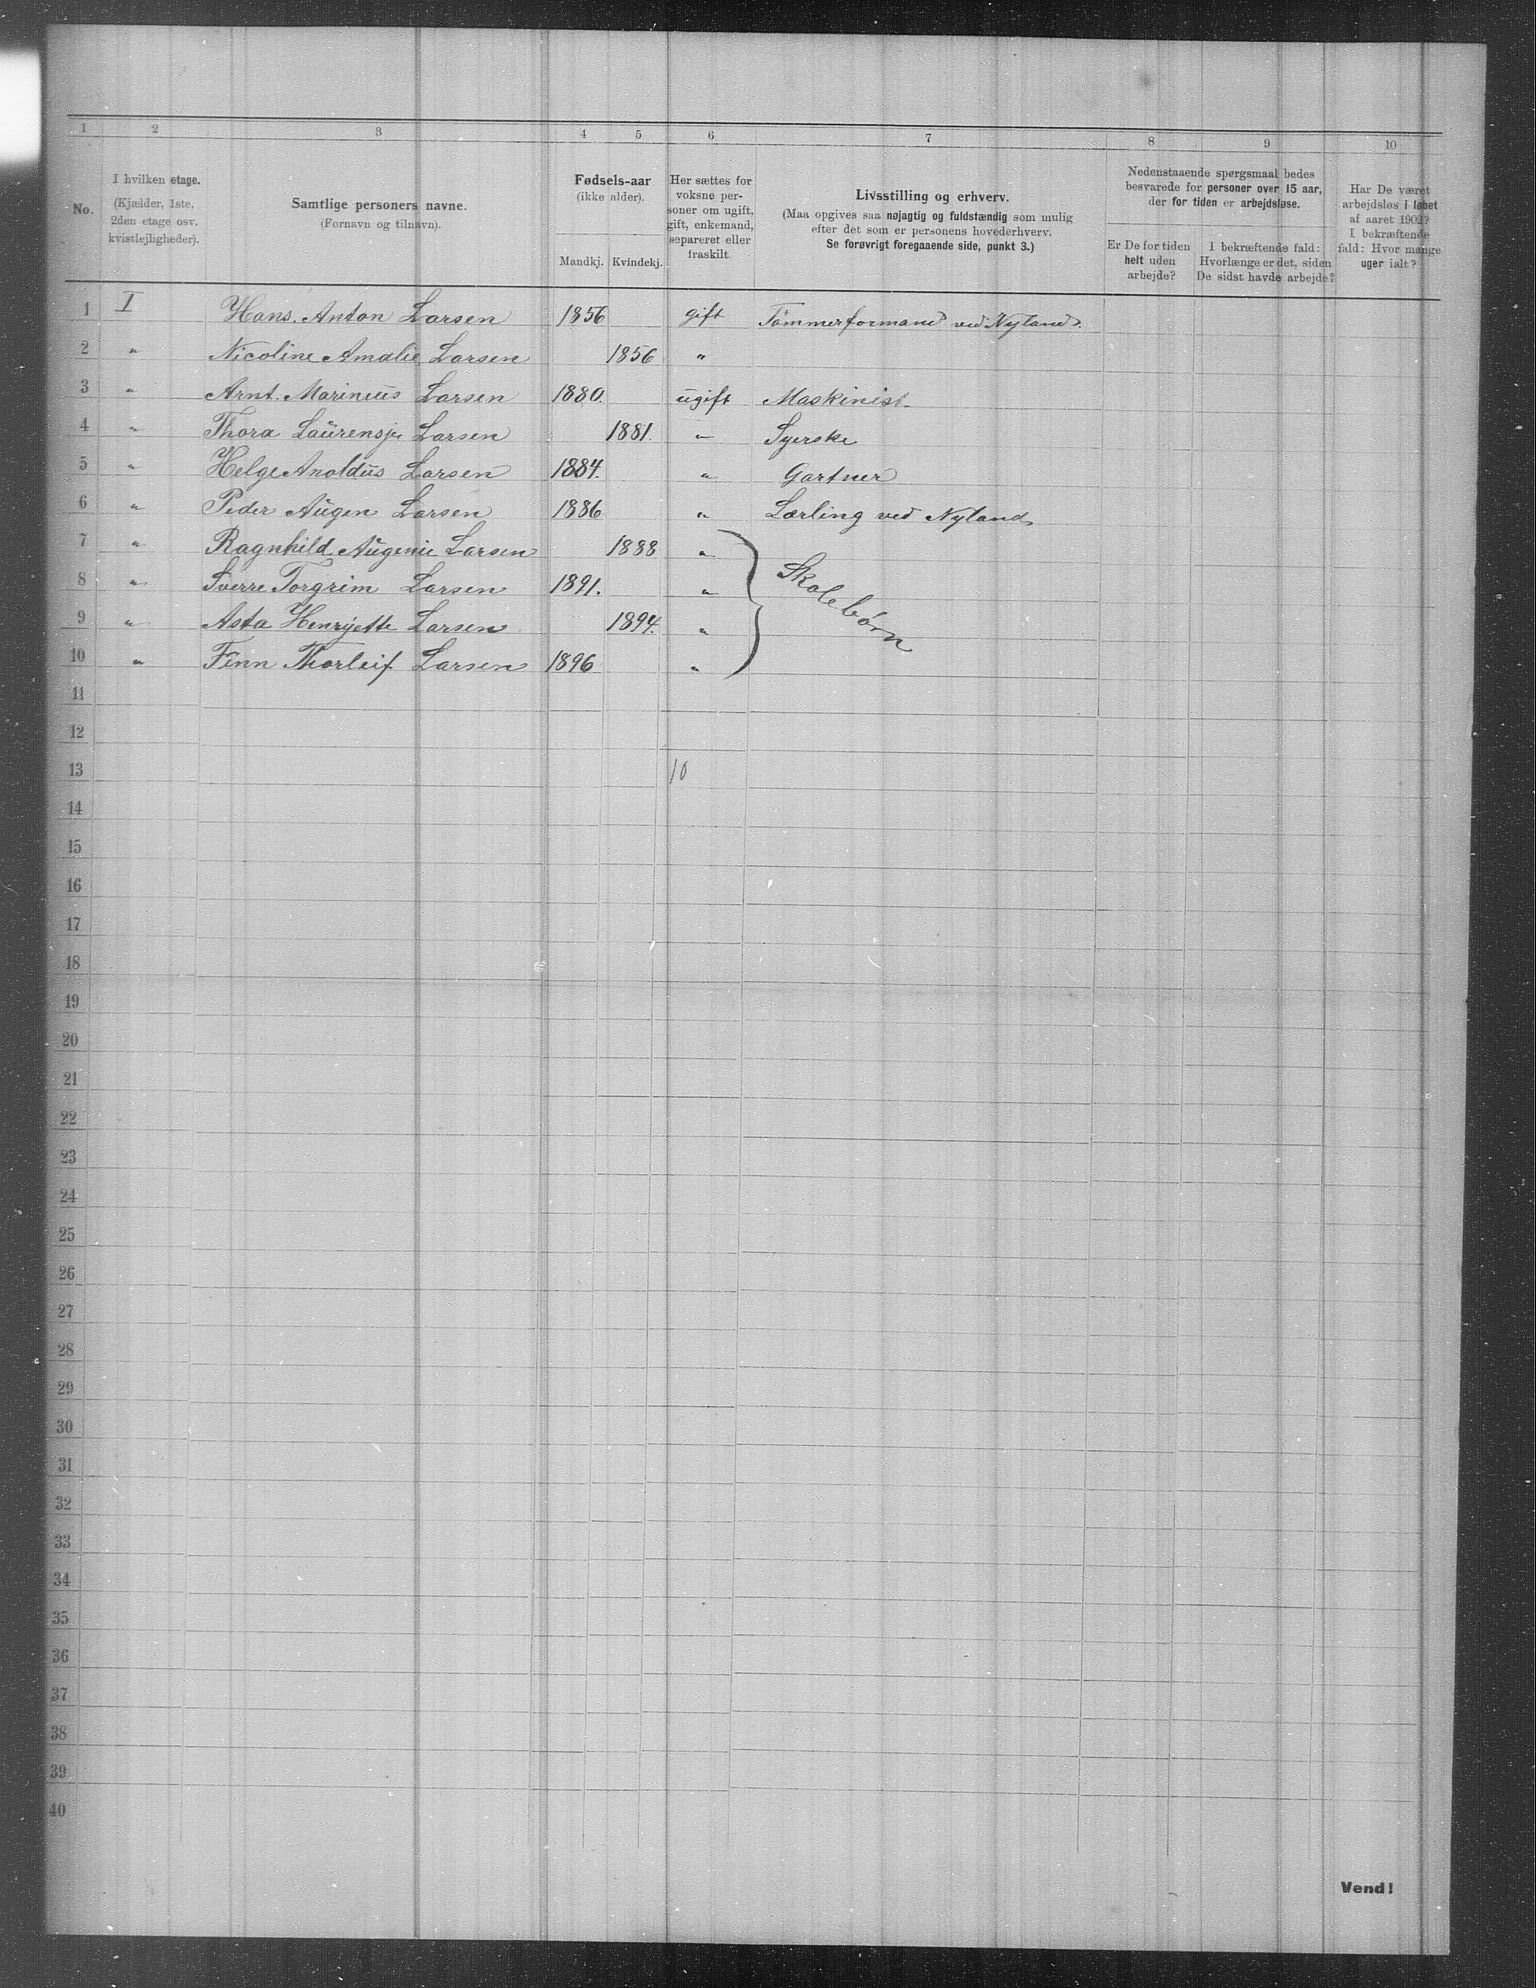 1 2 3 4 5 6 7 8 9 10
No.
I hvilken etage.
(Kjælder, 1ste,
2den etage osv.
kvistlejligheder).
Samtlige personers navne.
(Fornavn og tilnavn).
Fødsels-aar
(ikke alder).
Mandkj. Kvindekj.
Her sættes for
voksne per-
soner om ugift,
gift, enkemand,
separeret eller
fraskilt.
Livsstilling og erhverv.
(Maa opgives saa nøjagtig og fuldstændig som mulig
efter det som er personens hovederhverv.
Se forøvrigt foregaaende side, punkt 3.)
Nedenstaaende spørgsmaal bedes
besvarede for personer over 15 aar,
der for tiden er arbejdsløse.
Er De for tiden
helt uden
arbejde?
I bekræftende fald:
Hvorlænge er det, siden
De sidst havde arbejde?
Har De været
arbejdsløs i løbet
af aaret 1902?
I bekræftende
fald: Hvor mange
uger ialt?
1 I Hans. Anton Larsen 1856 gift Tømmerformand ved Nyland.
2 " Nicoline Amalie Larsen 1856 "
3 " Arnt. Marinius Larsen 1880. ugift Maskinist
4 " Thora Laurensje Larsen 1881. " Syerske
5 " Helge Anoldus Larsen 1884. " Gartner
6 " Peder Augen Larsen 1886 " Lærling ved Nyland
7 " Ragnhild Augenie Larsen 1888 "
8 " Sverre Torgrim Larsen 1891. " Skolebørn
9 " Asta Henrijette Larsen 1894. "
10 " Finn Thorleif Larsen 1896 "
11
12
13 10
14
15
16
17
18
19
20
21
22
23
24
25
26
27
28
29
30
31
32
33
34
35
36
37
38
39
40
Vend!